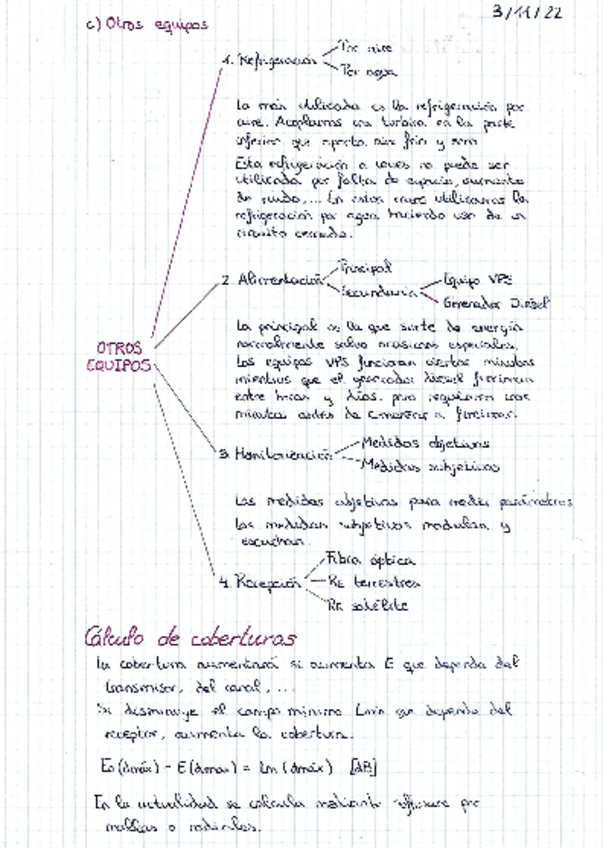 3/11/22
c) Otros equipos
1. Refrigeración
Por aire
Por agua
La más utilizada es la refrigeración por
aire. Acoplamos una turbina en la parte
inferior que aporta aire frío y seco
Esta refrigeración a veces no puede ser
utilizada por falta de espacio, aumento
de ruido,... En estos casos utilizamos la
refrigeración por agua haciendo uso de un
circuito cerrado.
2. Alimentación
Principal
Secundaria
Equipo VPS
Generador Diésel
OTROS
EQUIPOS
La principal es la que surte de energía
normalmente salvo ocasiones especiales.
Los equipos VPS funcionan ciertos minutos
mientras que el generador diesel funciona
entre horas y días. pero requieren unos
minutos antes de comenzar a funcionar.
3. Monitorización
Medidas objetivas
Medidas subjetivas
Las medidas objetivas para medir parámetros
Las medidas subjetivas modulan y
escuchan.
4. Recepción
Fibra óptica
Re terrestres
Re satélite
Cálculo de coberturas
La cobertura aumentará si aumenta E que dependa del
transmisor, del canal,...
Si disminuye el campo mínimo que depende del
receptor, aumenta la cobertura.
(dmáx) - E(dmáx) = Lm (dmáx) [dB]
En la actualidad se calcula mediante software por
mallas o radiales.